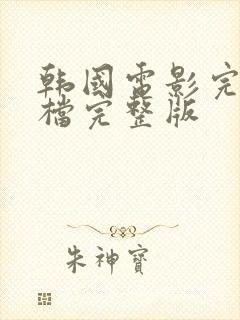 韩国电影完
檔完整版
朱神寶